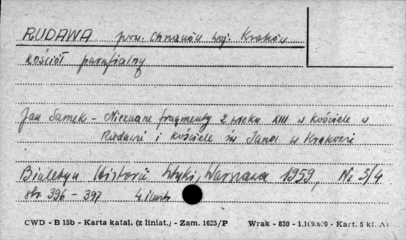 RUDAWA pow. Chrzanów woj. Kraków
kościół parafialny
Jan Samek - Nieznane fragmenty z wieku XIII w kościele w
Rudawie i kościele św Jana w Krakowie
Biuletyn Historii Sztuki, Warszawa 1959, Nr 3/4
str 396 - 397 4 ilustr
CWD - B 15b - Karta katal. (z liniat.) - Zam. 1625/P Wrak - 830 - Kart. 5 kl. A